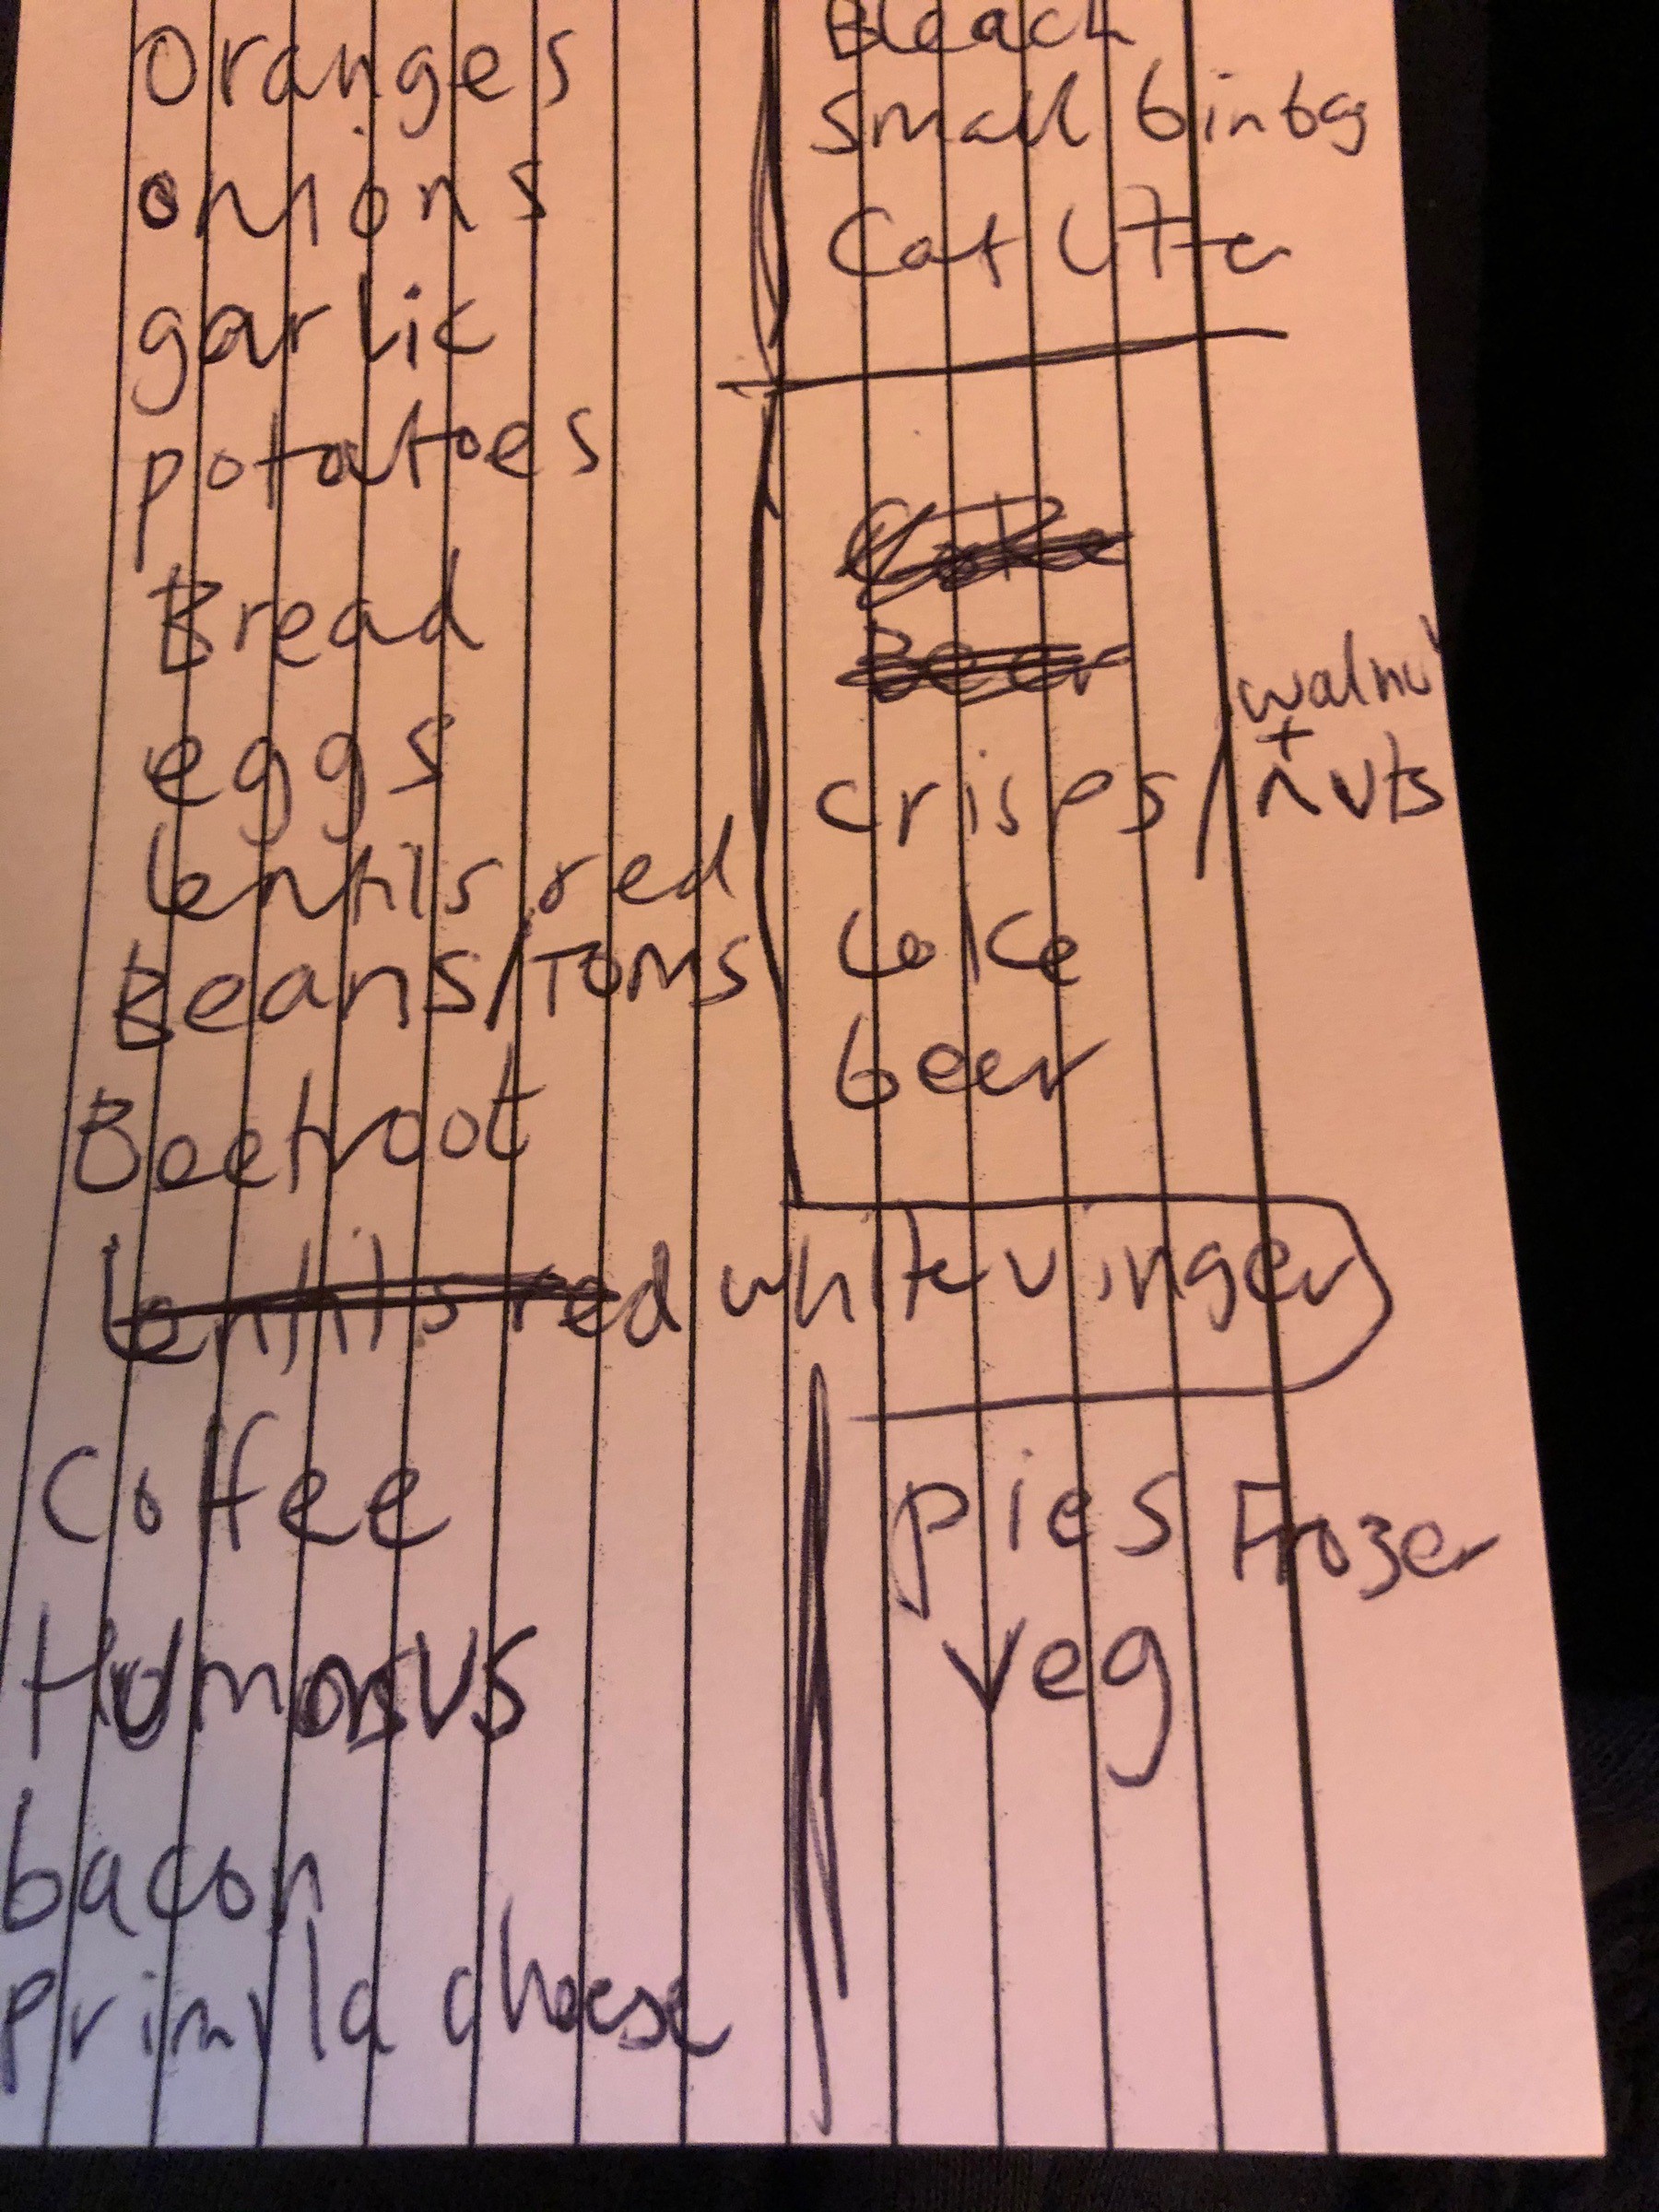 Oranges
onions
garlic
potatoes
Bread
eggs
lentils red
Beans/Toms
Beetroot
lentils red white vinger
Coffee
Hummus
bacon
primula cheese
Bleach
Small binbag
Cat litter
Coke
Beer
walnut
+
crisps/nuts
Coke
beer
pies Frozen
veg